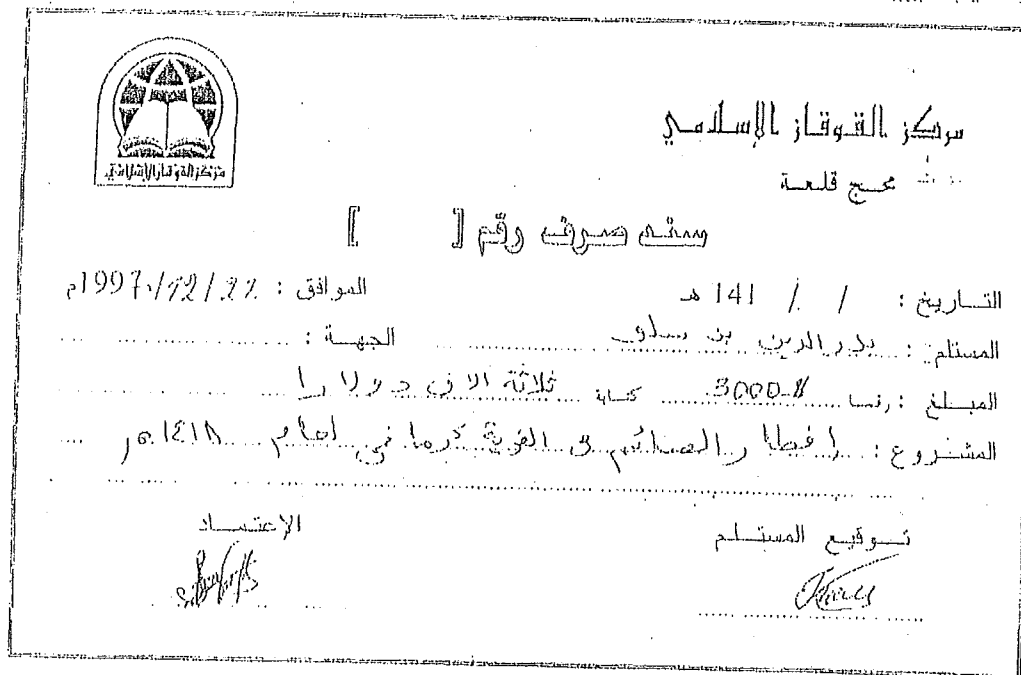 مركز القوقاز الإسلامي
مركز القوقاز الإسلامي
محج قلعة
سند صرف رقم [ ]
التاريخ : / / 141 هـ الموافق : 1997/12/27م
المستلم : بدر الدين بن الجهة :
المبلغ : رقما 3000-$ كتابة ثلاثة الاف دولارا
المشروع : افطار الصائم في القرية كرماني ١٤١٨هـ
توقيع المستلم الإعتماد